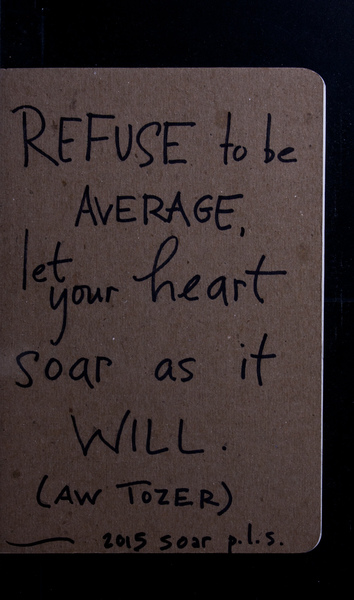 REFUSE to be
AVERAGE,
let your heart
soar as it
WILL.
(AW TOZER)
— 2015 soar p.l.s.